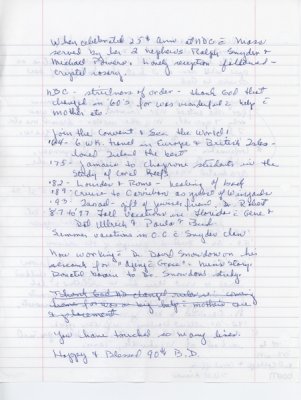 When celebrated 25th Ann. at NDC - Mass
served by her 2 nephews Ralph Snyder &
Michael Powers. Lovely reception followed -
rosary.
NDC - strictness of order - thank God that
changed in 60's for was wonderful help to
mother etc.
Join the Convent & See the World!
'64 - 6 wk. travel in Europe & British Isles -
loved Ireland the best
'75 - Jamaica to chaperone students in the
Study of Coral Reefs
'82 - London & Rome -
'89 - Cruise to Caribbean as guest of
'93 - Israel - gift of friend, Dr.
87-97 Fall vacations in Florida - Gene &
Dot Ullrich & Paula & Bud.
Summer vacations in O.C. - Snyder clan
Now working - Dr. David Snowdon on his
research for "Aging & Grace" - Nuns' Story.
Donated brain to Dr. Snowdon's study
Thank God NDC changed rules in coming
home for was a big help to mother's care
& replacement
You have touched so many lives.
Happy & Blessed 90th B.D.